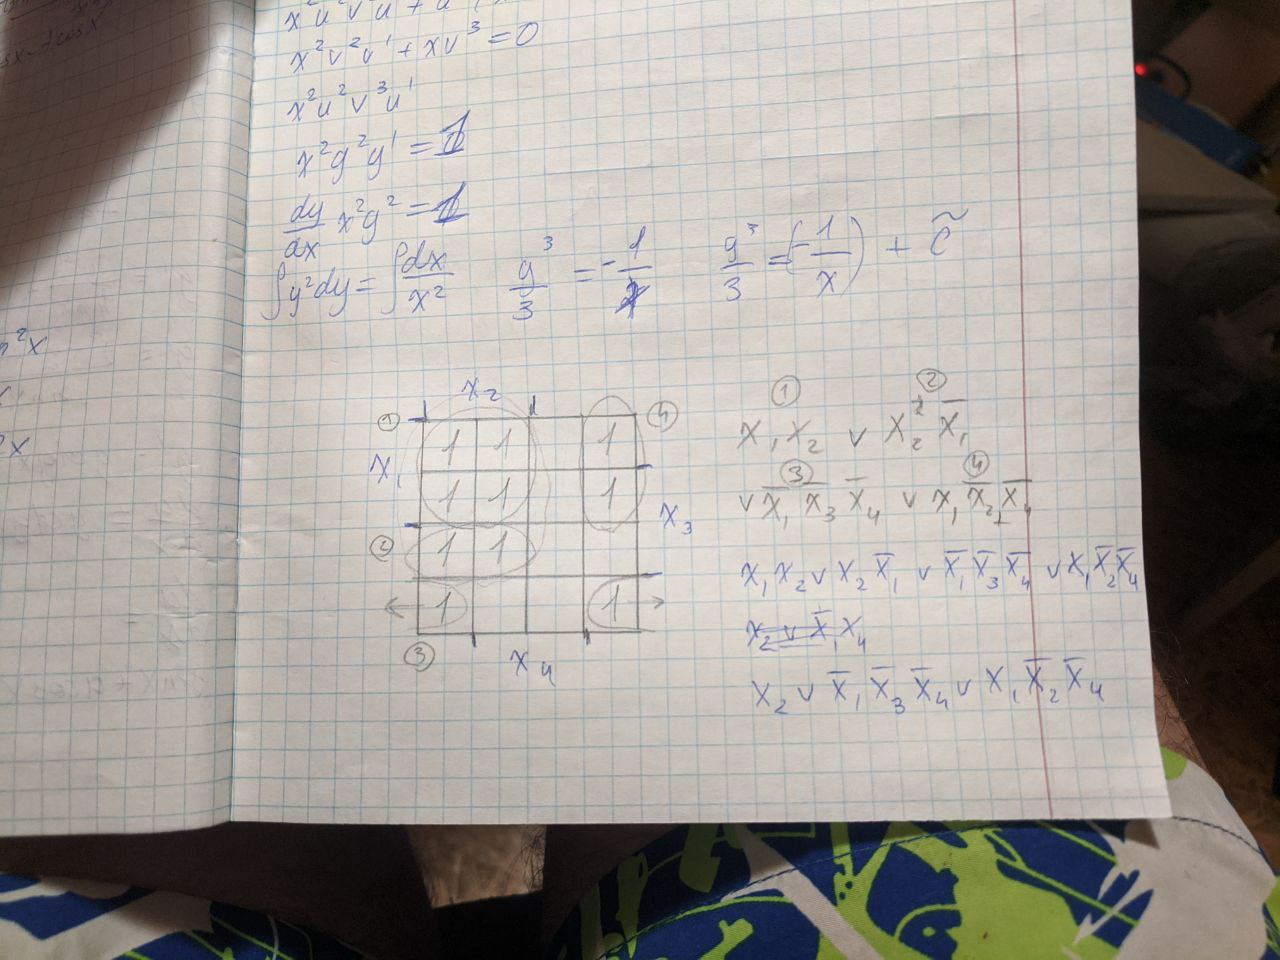 x²v²v' + xv³ = 0
x²u²v³u'
x²y²y' = 1
dy/dx x²y² = 1
∫y²dy = ∫dx/x² y³/3 = -1/x y³/3 = (-1/x) + C̃
x₂
① ④
1 1 1
x₁
1 1 1
x₃
② 1 1
1 1
③ x₄
① ②
x₁x₂ ∨ x₂ x̄₁
③ ④
∨ x̄₁ x̄₃ x̄₄ ∨ x₁ x̄₂ x̄₄
x₁x₂ ∨ x₂ x̄₁ ∨ x̄₁ x̄₃ x̄₄ ∨ x₁ x̄₂ x̄₄
x₂ ∨ x̄₁ x₄
x₂ ∨ x̄₁ x̄₃ x̄₄ ∨ x₁ x̄₂ x̄₄